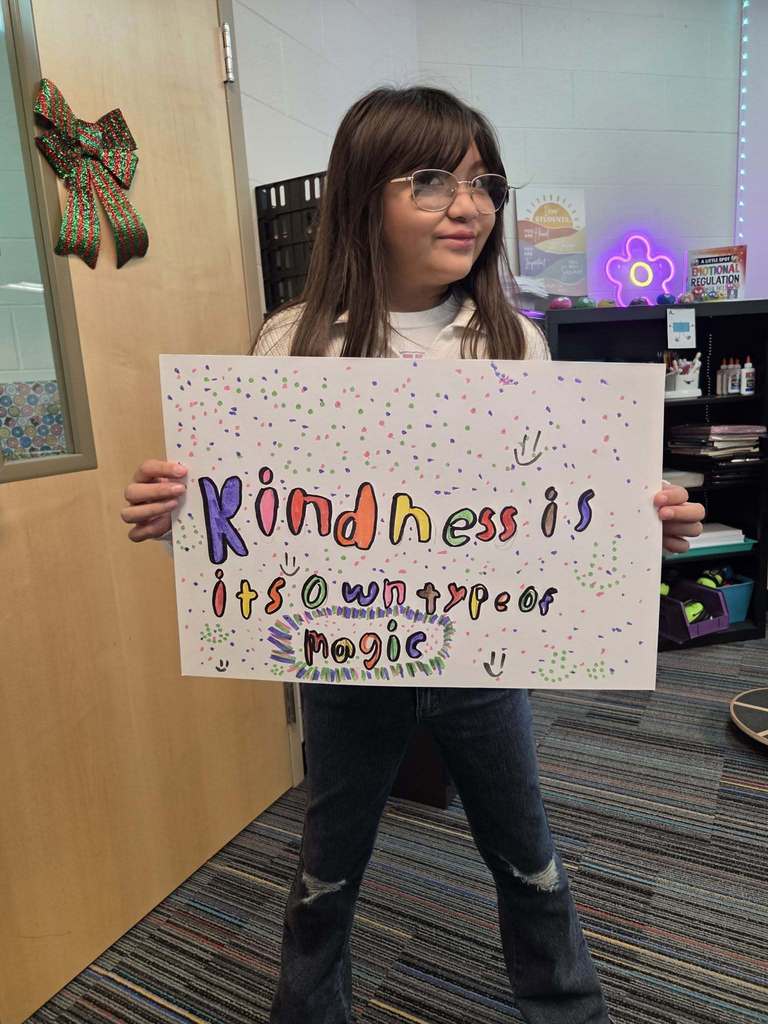 Kindness is
its own type of
magic
STUDENTS
A LITTLE SPOT
EMOTIONAL
REGULATION